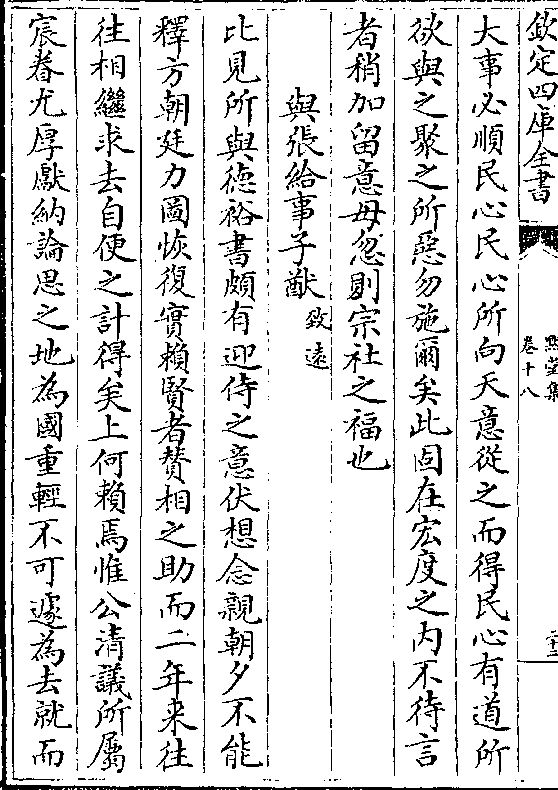 欽定四庫全書
默堂集
卷十八
二十二
大事必順民心民心所向天意從之而得民心有道所
欲與之聚之所惡勿施爾矣此固在宏度之内不待言
者稍加留意毋忽則宗社之福也
與張給事子猷致遠
比見所與德裕書頗有迎侍之意伏想念親朝夕不能
釋方朝廷力圖恢復實賴賢者賛相之助而二年来往
往相繼求去自便之計得矣上何頼焉惟公清議所屬
宸眷尤厚獻納論思之地為國重輕不可遽為去就而